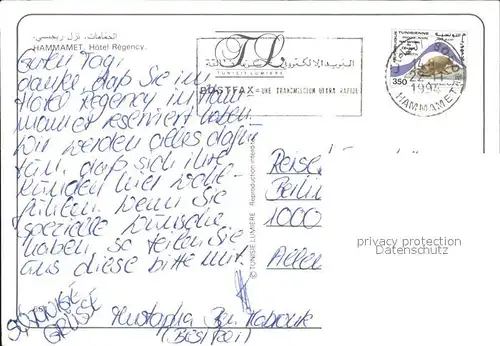 الحمامات، نزل ريجنسي
HAMMAMET, Hôtel Régency.
Guten Tag,
danke, daß Sie im
Hotel Regency in Ham
mamet reserviert haben.
Wir werden alles dafür
tun, daß sich Ihre
Kunden hier wohl-
fühlen. Wenn Sie
spezielle Wünsche
haben, so teilen Sie
uns diese bitte mit.
SONNIGE
GRÜSSE
Mustapha Ben
TL
TUNISIE LUMIERE
POSTFAX = UNE TRANSMISSION ULTRA RAPIDE
350
1994
HAMMAMET
© TUNISIE LUMIERE Reproduction interdite
Reise
Berlin
1000
privacy protection
Datenschutz